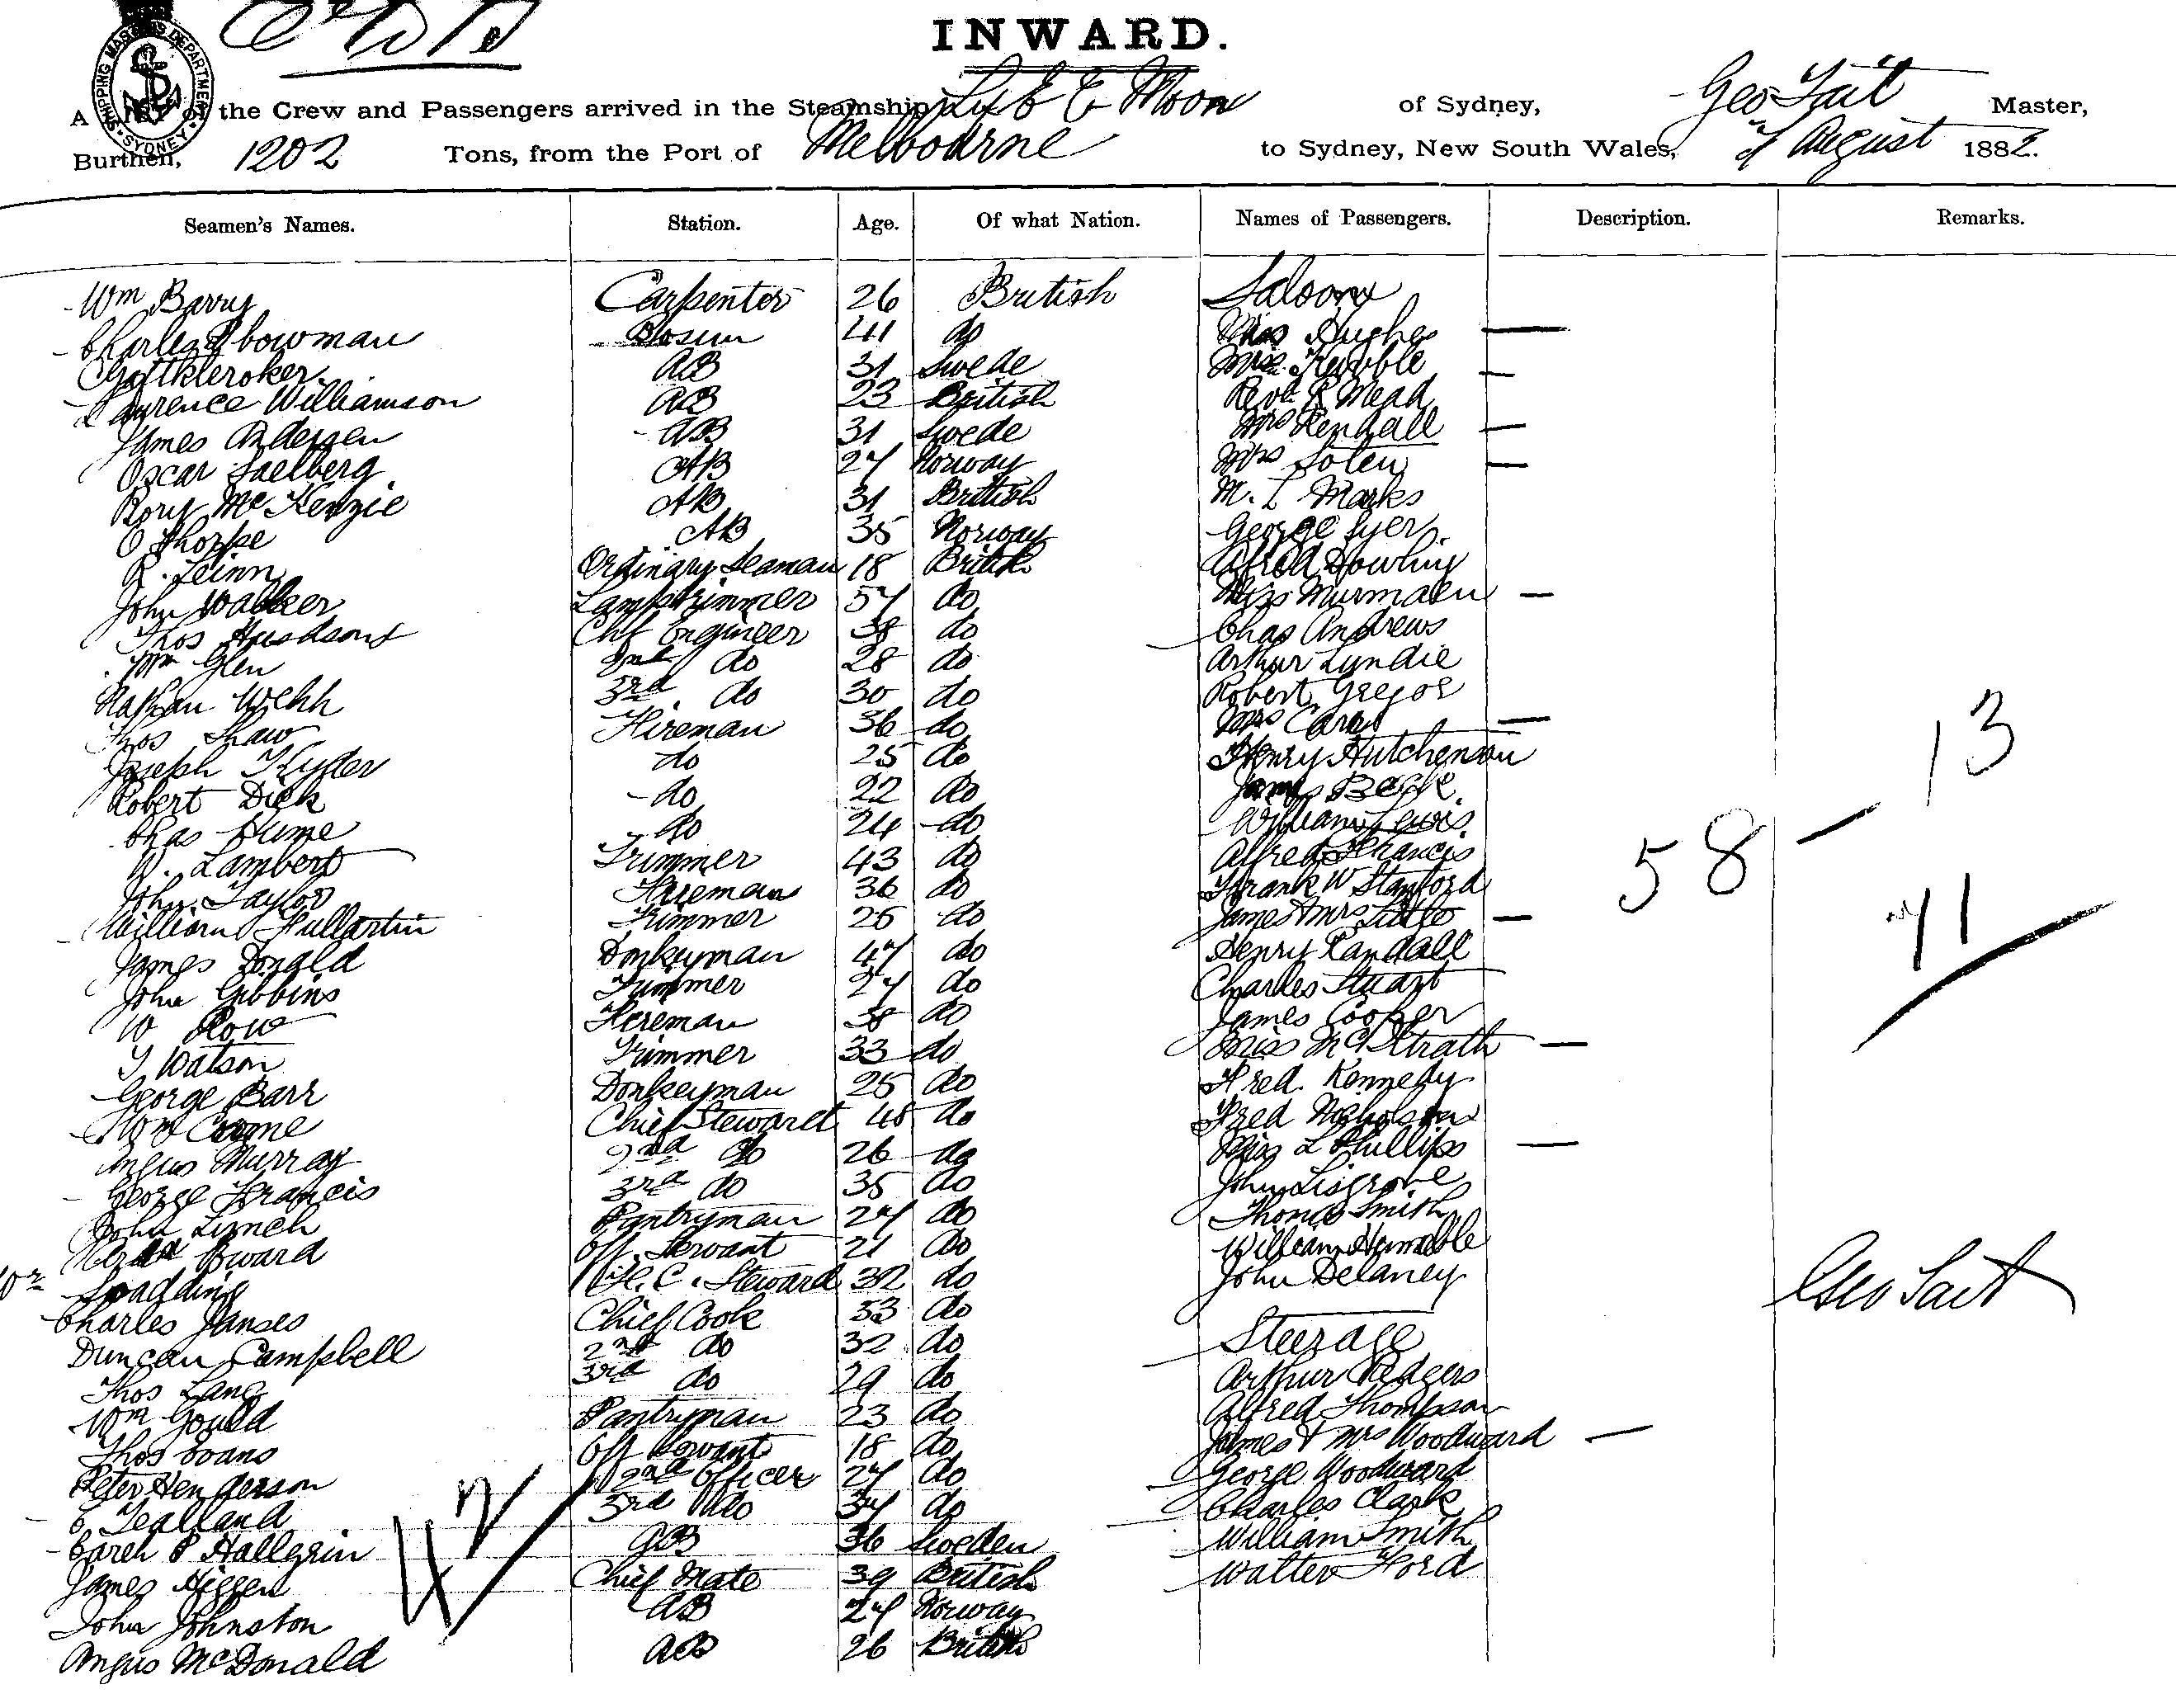 INWARD.
A List of the Crew and Passengers arrived in the Steamship Ly E E Moon of Sydney, Geo Tait Master,
Burthen, 1202 Tons, from the Port of Melbourne to Sydney, New South Wales, August 1882.
SHIPPING MASTERS DEPARTMENT SYDNEY
Seamen's Names. Station. Age. Of what Nation. Names of Passengers. Description. Remarks.
Wm Barry Carpenter 26 British Saloon
Charles Bowman Bosun 41 do Miss Hughes —
AB 31 Swede Mrs —
Laurence Williamson AB 23 British Revd R Mead
James Andersen AB 31 Swede Mrs Kendall —
Oscar Saelberg AB 27 Norway Mrs —
Rory McKenzie AB 31 British M. L Marks
O Thorpe AB 35 Norway George Syer
R. Ordinary Seaman 18 British Alfred Dowling
John Walker Lamptrimmer 57 do Miss —
Thos Chf Engineer 38 do Chas Andrews
Wm Glen 2nd do 28 do Arthur Lyndie
Nathan Webb 3rd do 30 do Robert Gregor
Thos Shaw Fireman 36 do Mrs —
Joseph Ryder do 25 do Henry Hutchenson
Robert Dick do 22 do James
Chas Hume do 24 do William Lewis
W. Lambert Trimmer 43 do Alfred Francis
John Taylor Fireman 36 do Frank W Stanford
William Fullartin Trimmer 25 do James & Mrs Little —
James Donald Donkeyman 47 do Henry Randall
John Gibbins Trimmer 27 do Charles Stuart
W Row Fireman 38 do James Cooper
T Watson Trimmer 33 do Miss —
George Barr Donkeyman 25 do Fred. Kennedy
Wm Chief Steward 48 do Fred Nicholson
Angus Murray 2nd do 26 do Miss L Phillips —
George Francis 3rd do 35 do John Lisgrove
John Lynch Pantryman 27 do Thomas Smith
Off. Servant 21 do William Humble
Spadding F.C. Steward 32 do John Delaney
Charles Janses Chief Cook 33 do
Duncan Campbell 2nd do 32 do Steerage
Thos Lang 3rd do 29 do Arthur Redgers
Wm Gould Pantryman 23 do Alfred Thompson
Thos Evans Off Servant 18 do James & Mrs Woodward —
Peter Henderson 2nd Officer 27 do George Woodward
E 3rd do 37 do Charles Clark
AB 36 Sweden William Smith
James Higgen Chief Mate 39 British Walter Ford
John Johnston AB 27 Norway
Angus McDonald AB 26 British
42
13
58
71
Geo Tait